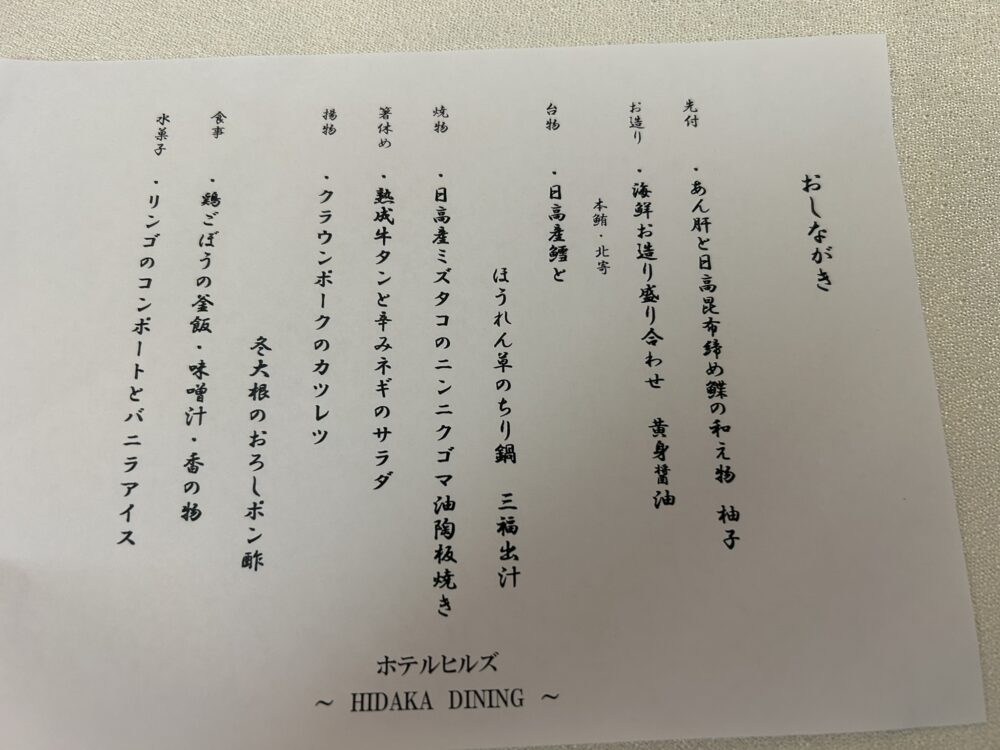 おしながき
先付
・あん肝と日高昆布締め鰈の和え物 柚子
お造り
・海鮮お造り盛り合わせ 黄身醤油
本鮪・北寄
台物
・日高産鱈と
ほうれん草のちり鍋 三福出汁
焼物
・日高産ミズタコのニンニクゴマ油陶板焼き
箸休め
・熟成牛タンと辛みネギのサラダ
揚物
・クラウンポークのカツレツ
冬大根のおろしポン酢
食事
・鶏ごぼうの釜飯・味噌汁・香の物
水菓子
・リンゴのコンポートとバニラアイス
ホテルヒルズ
～ HIDAKA DINING ～